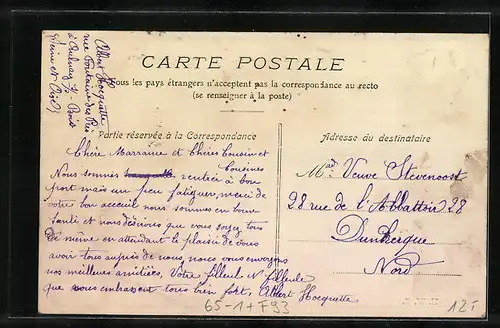 Albert Hocquette
rue Fontaine des Prés
à Aulnay s/ Bois
(Seine et Oise)
CARTE POSTALE
Tous les pays étrangers n'acceptent pas la correspondance au recto
(se renseigner à la poste)
Partie réservée à la Correspondance
Chère Marraine et Chers Cousin et
Cousines
Nous sommes rentrés à bon
port mais un peu fatiguer, merci de
votre bon accueil nous sommes en bonne
santé et nous désirons que vous soyez tous
de même en attendant le plaisir de vous
avoir tous auprès de nous, nous vous envoyons
nos meilleurs amitiées, Votre filleule et filleule
que vous embrassent tous bien fort, Albert Hocquette
Adresse du destinataire
Mad Veuve Stevenoost
28 rue de l'Abbattoir 28
Dunkerque
Nord
65-1+F93
12F